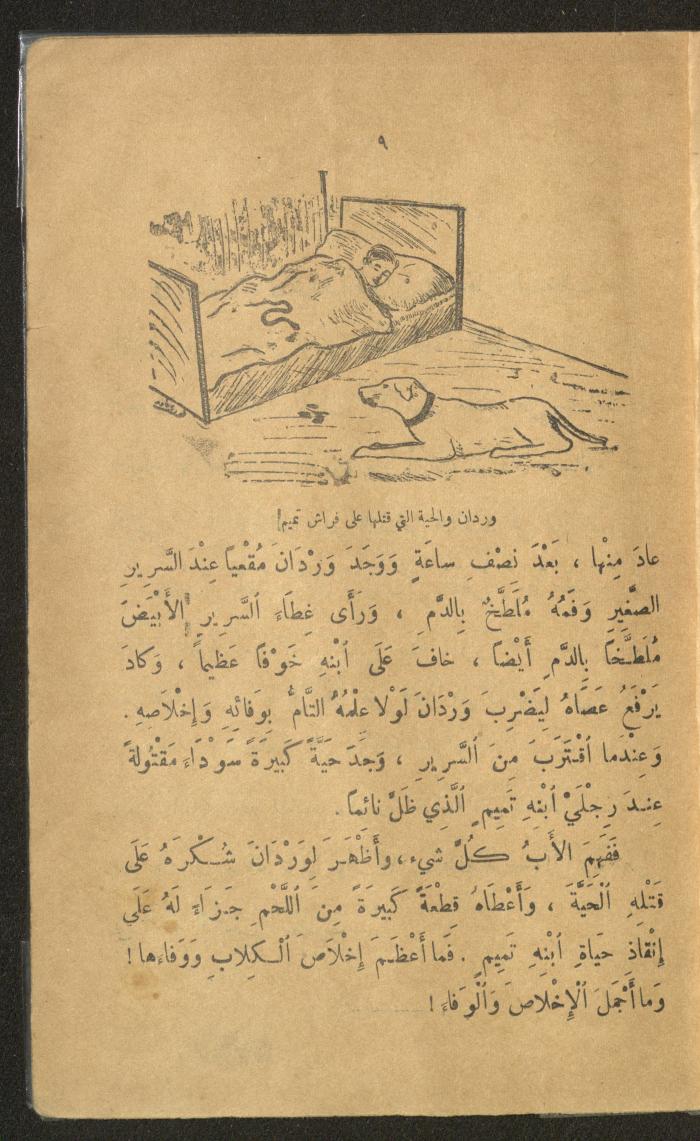 ٩
وردان والحية التي قتلها على فراش تميم!
عادَ مِنْها ، بَعْدَ نِصْفِ ساعَةٍ وَوَجَدَ وَرْدَانَ مُقْعياً عِنْدَ السَّرِيرِ
الصَّغيرِ وَفَمُهُ مُلَطَّخٌ بِالدَّمِ ، وَرَأَى غِطَاءَ ٱلسَّرِيرِ الأَبْيَضَ
مُلَطَّخاً بِالدَّمِ أَيْضاً ، خافَ عَلَى ٱبْنِهِ خَوْفاً عَظيماً ، وَكادَ
يَرْفَعُ عَصَاهُ لِيَضْرِبَ وَرْدَانَ لَوْلا عِلْمُهُ التَّامُّ بِوَفائِهِ وَإِخْلاصِهِ .
وَعِنْدَما ٱقْتَرَبَ مِنَ ٱلسَّرِيرِ ، وَجَدَ حَيَّةً كَبيرَةً سَوْدَاءَ مَقْتُولَةً
عِنْدَ رِجْلَيْ ٱبْنِهِ تَمِيمٍ ٱلَّذِي ظَلَّ نائماً .
فَفَهِمَ الأَبُ كُلَّ شيء ، وأَظْهَرَ لِوَرْدَانَ شُكْرَهُ عَلَى
قَتْلِهِ ٱلْحَيَّةَ ، وَأَعْطَاهُ قِطْعَةً كَبيرَةً مِنَ ٱللَّحْمِ جَزَاءً لَهُ عَلَى
إِنْقاذِ حَياةِ ٱبْنِهِ تَمِيمٍ . فَما أَعْظَمَ إِخْلاصَ ٱلْكِلابِ وَوَفاءَها !
وَما أَجْمَلَ ٱلْإِخْلاصَ وَٱلْوَفاءَ !